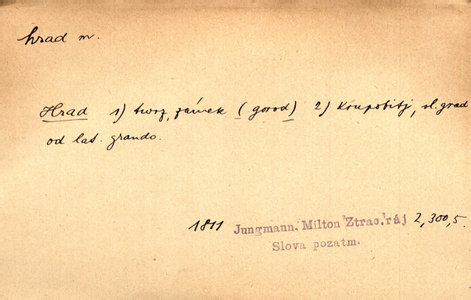 hrad m.
Hrad 1) twrz, zámek (gorod) 2) Krupobitj, sl. grad
od lat. grando.
1811 Jungmann, Milton Ztrac. ráj 2, 300, 5.
Slova pozatm.